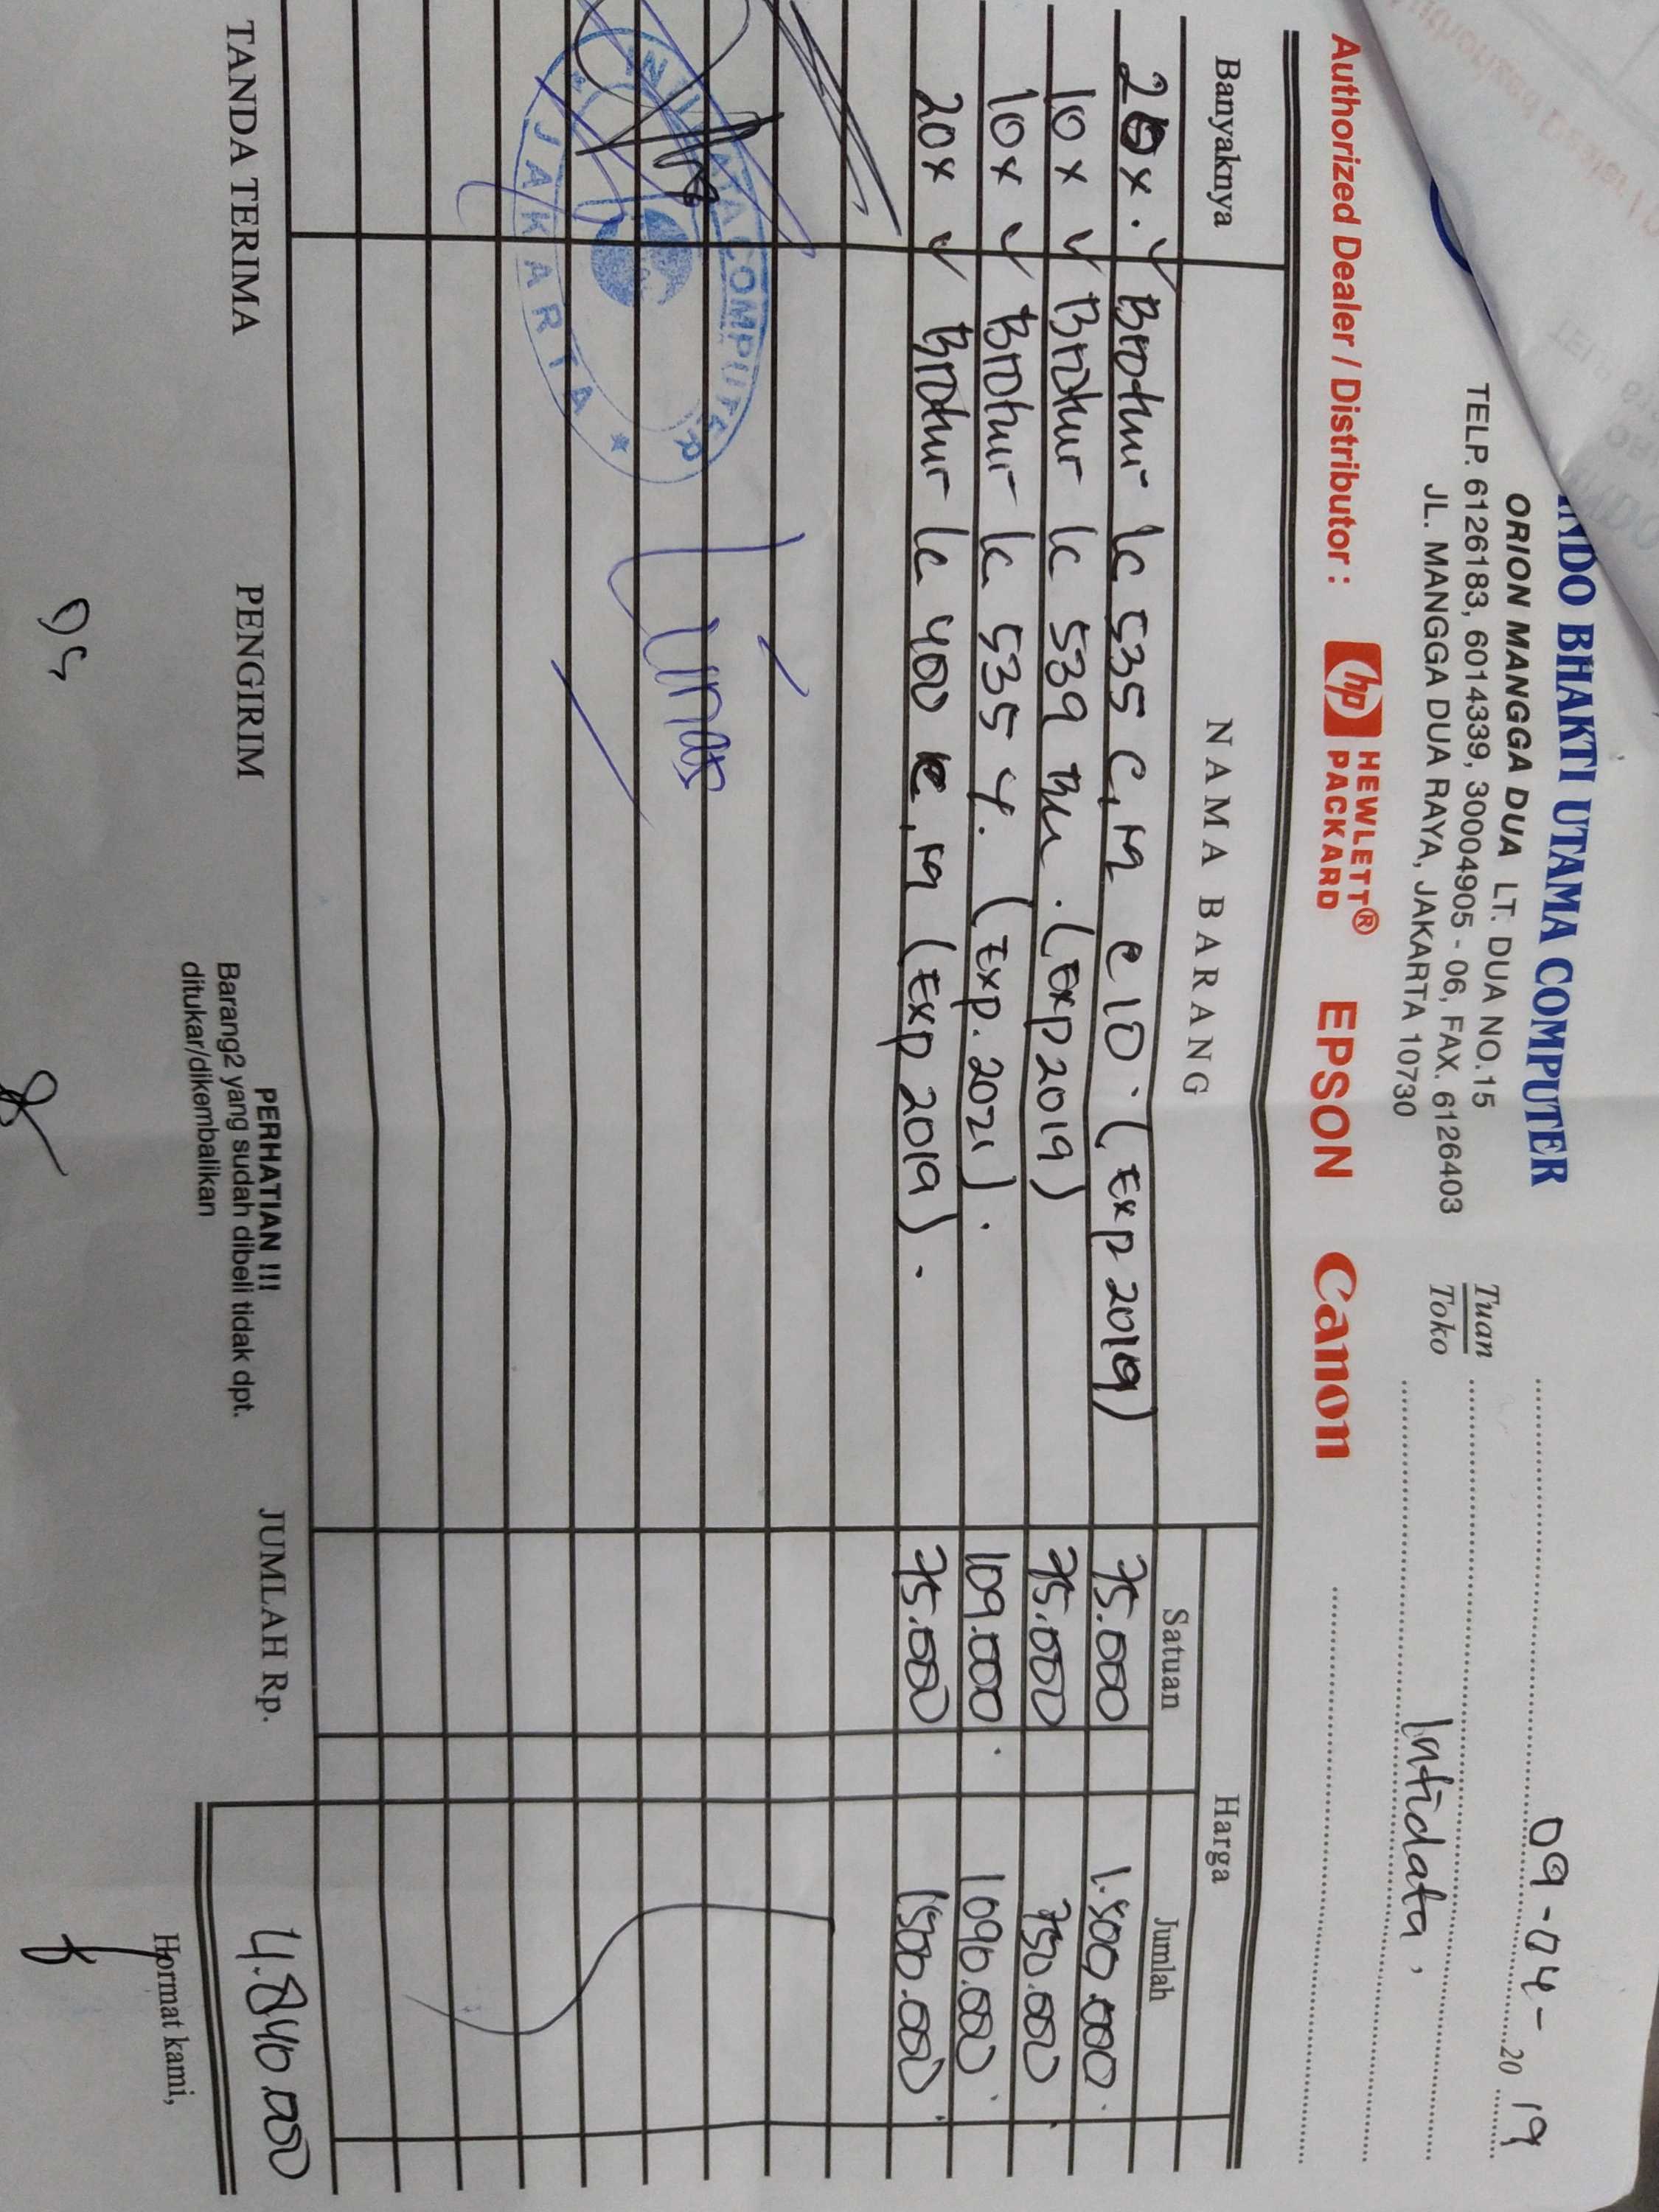 INDO BHAKTI UTAMA COMPUTER
ORION MANGGA DUA LT. DUA NO.15
TELP. 6126183, 6014339, 30004905 - 06, FAX. 6126403
JL. MANGGA DUA RAYA, JAKARTA 10730
09-04- 20 19
Tuan
Toko
Intidata,
Authorized Dealer / Distributor : hp HEWLETT® PACKARD EPSON Canon
Banyaknya NAMA BARANG Harga
Satuan Jumlah
20x. ✓ Brother lc 535 C, M @ 10. (Exp 2019) 75.000 1.500.000.
10x ✓ Brother lc 539 Bk. (Exp 2019) 75.000 750.000
10x ✓ Brother lc 535 Y. (Exp. 2021). 109.000 1090.000.
20x ✓ Brother lc 400 C, M (Exp 2019). 75.000 1500.000.
COMPUTER
JAKARTA
TANDA TERIMA PENGIRIM
PERHATIAN !!!
Barang2 yang sudah dibeli tidak dpt.
ditukar/dikembalikan
JUMLAH Rp. 4.840.000
Hormat kami,